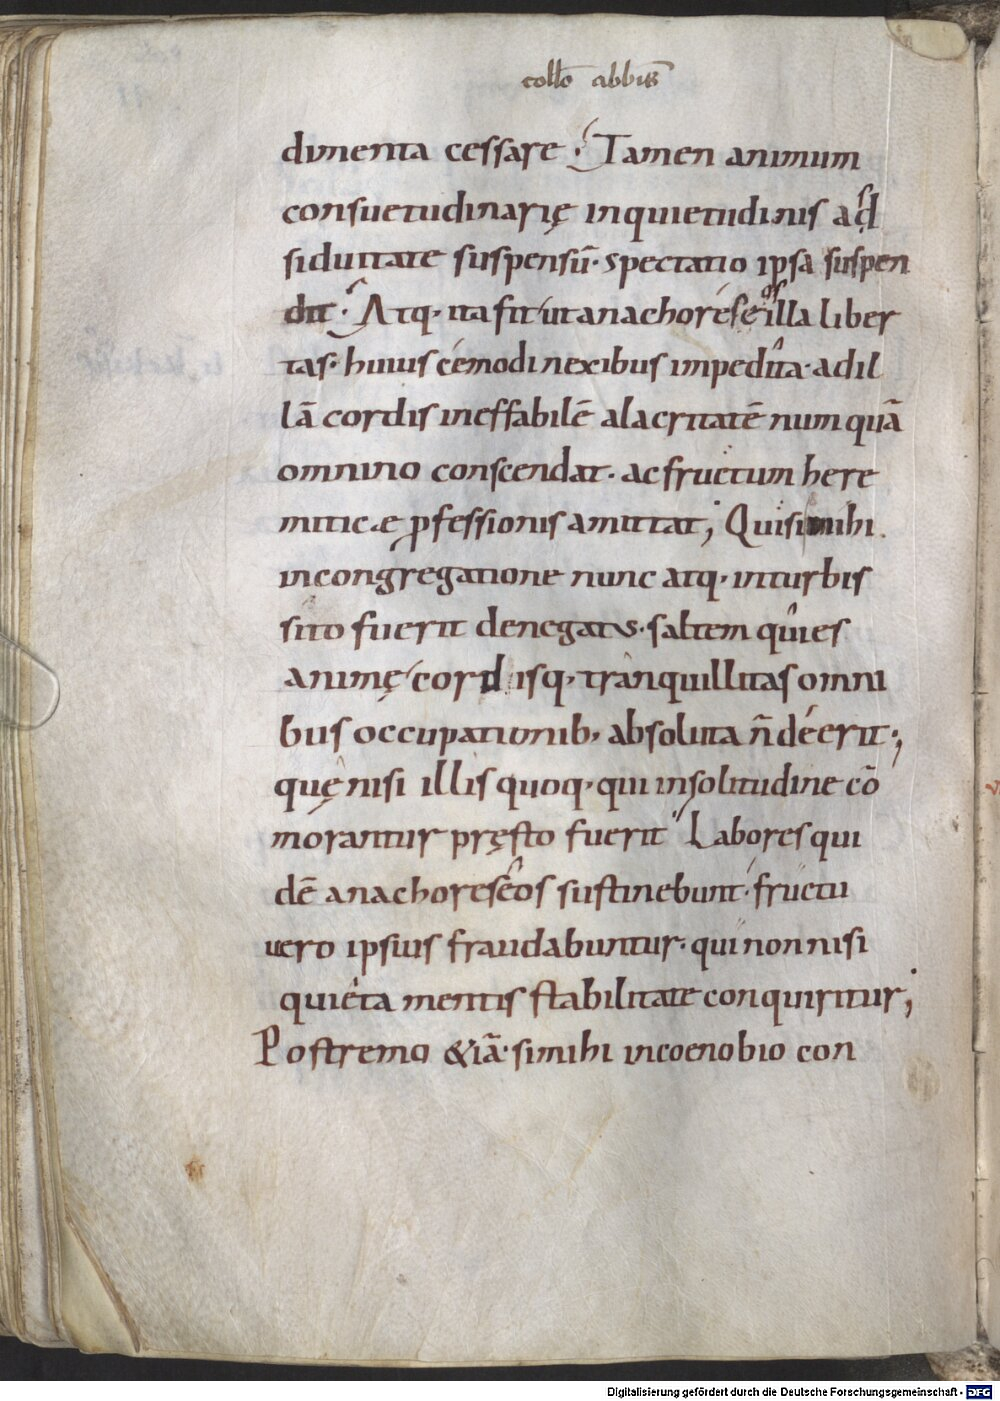 collō abbis
dimenta cessare. Tamen animum
consuetudinarię inquietudinis ad
siduitate suspensū. spectatio ipsa suspen
dit. Atq. ita fit ut anachoreseos illa liber
tas. huius cemodi nexibus impedita. ad il
lā cordis ineffabilē alacritatē numquā
omnino conscendat. ac fructum here
miticae pfessionis amittat; Qui si mihi
in congregatione nunc atq. in turbis
sito fuerit denegatus. saltem quies
animę cordisq. tranquillitas omni
bus occupationib. absoluta ñ deerit;
quę nisi illis quoq. qui in solitudine cō
morantur pręsto fuerit Labores qui
dē anachoreseos sustinebunt. fructu
vero ipsius fraudabuntur. qui non nisi
quieta mentis stabilitate conquiritur;
Postremo &iā. si mihi in coenobio con
Digitalisierung gefördert durch die Deutsche Forschungsgemeinschaft - DFG